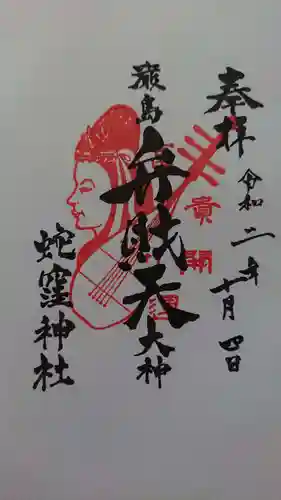 奉拝
令和二年十月四日
厳島
弁財天
大神
蛇窪神社